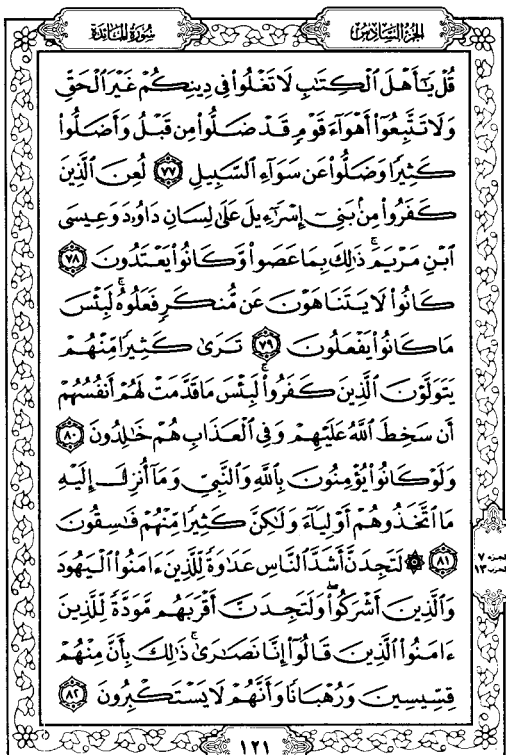 سُورَةُ المَائِدَة
الجُزْءُ السَّادِسُ
قُلْ يَٰٓأَهْلَ ٱلْكِتَٰبِ لَا تَغْلُوا۟ فِى دِينِكُمْ غَيْرَ ٱلْحَقِّ
وَلَا تَتَّبِعُوٓا۟ أَهْوَآءَ قَوْمٍ قَدْ ضَلُّوا۟ مِن قَبْلُ وَأَضَلُّوا۟
كَثِيرًا وَضَلُّوا۟ عَن سَوَآءِ ٱلسَّبِيلِ ٧٧ لُعِنَ ٱلَّذِينَ
كَفَرُوا۟ مِنۢ بَنِىٓ إِسْرَٰٓءِيلَ عَلَىٰ لِسَانِ دَاوُۥدَ وَعِيسَى
ٱبْنِ مَرْيَمَ ۚ ذَٰلِكَ بِمَا عَصَوا۟ وَّكَانُوا۟ يَعْتَدُونَ ٧٨
كَانُوا۟ لَا يَتَنَاهَوْنَ عَن مُّنكَرٍ فَعَلُوهُ ۚ لَبِئْسَ
مَا كَانُوا۟ يَفْعَلُونَ ٧٩ تَرَىٰ كَثِيرًا مِّنْهُمْ
يَتَوَلَّوْنَ ٱلَّذِينَ كَفَرُوا۟ ۚ لَبِئْسَ مَا قَدَّمَتْ لَهُمْ أَنفُسُهُمْ
أَن سَخِطَ ٱللَّهُ عَلَيْهِمْ وَفِى ٱلْعَذَابِ هُمْ خَٰلِدُونَ ٨٠
وَلَوْ كَانُوا۟ يُؤْمِنُونَ بِٱللَّهِ وَٱلنَّبِىِّ وَمَآ أُنزِلَ إِلَيْهِ
مَا ٱتَّخَذُوهُمْ أَوْلِيَآءَ وَلَٰكِنَّ كَثِيرًا مِّنْهُمْ فَٰسِقُونَ
٨١ ۞ لَتَجِدَنَّ أَشَدَّ ٱلنَّاسِ عَدَٰوَةً لِّلَّذِينَ ءَامَنُوا۟ ٱلْيَهُودَ
وَٱلَّذِينَ أَشْرَكُوا۟ ۖ وَلَتَجِدَنَّ أَقْرَبَهُم مَّوَدَّةً لِّلَّذِينَ
ءَامَنُوا۟ ٱلَّذِينَ قَالُوٓا۟ إِنَّا نَصَٰرَىٰ ۚ ذَٰلِكَ بِأَنَّ مِنْهُمْ
قِسِّيسِينَ وَرُهْبَانًا وَأَنَّهُمْ لَا يَسْتَكْبِرُونَ ٨٢
الجزء ٧
الحزب ١٣
١٢١